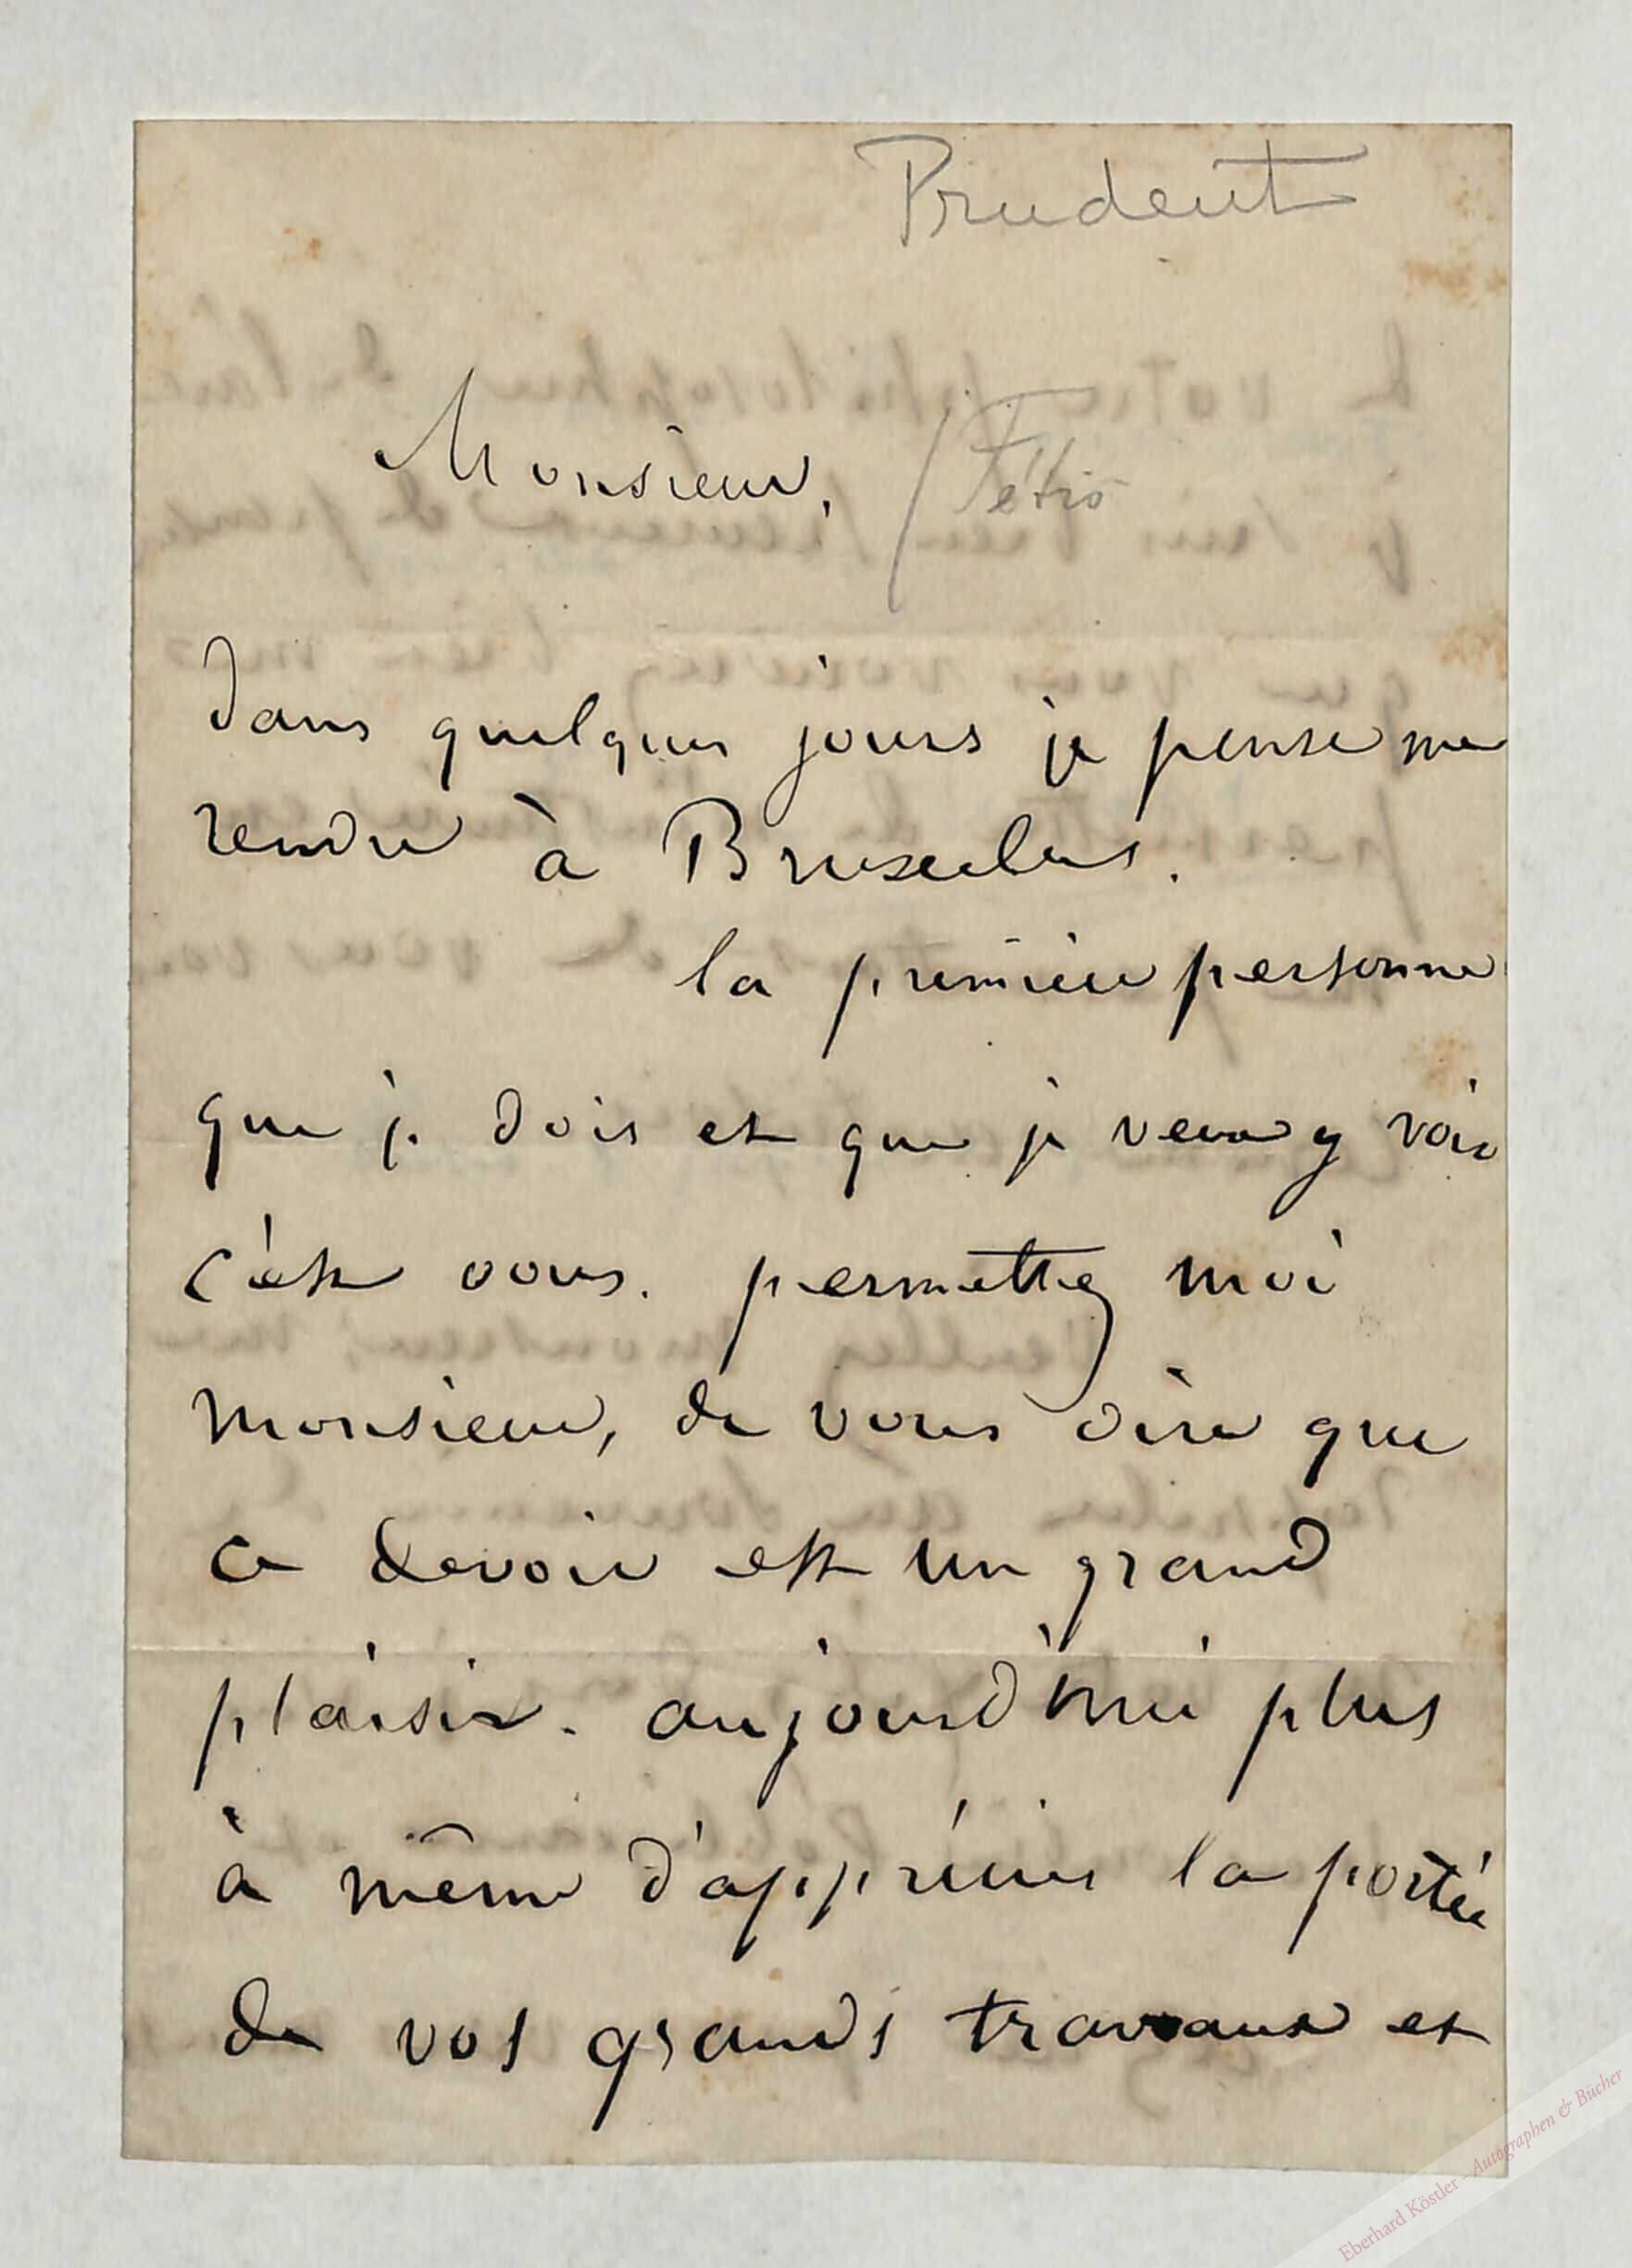 Prudent
Monsieur, / Fétis
dans quelques jours je pense me
rendre à Bruxelles.
la première personne
que je dois et que je veux y voir
c'est vous. permettez moi
monsieur, de vous dire que
ce devoir est un grand
plaisir. aujourd'hui plus
à même d'apprécier la portée
de vos grands travaux et
Eberhard Köstler - Autographen & Bücher